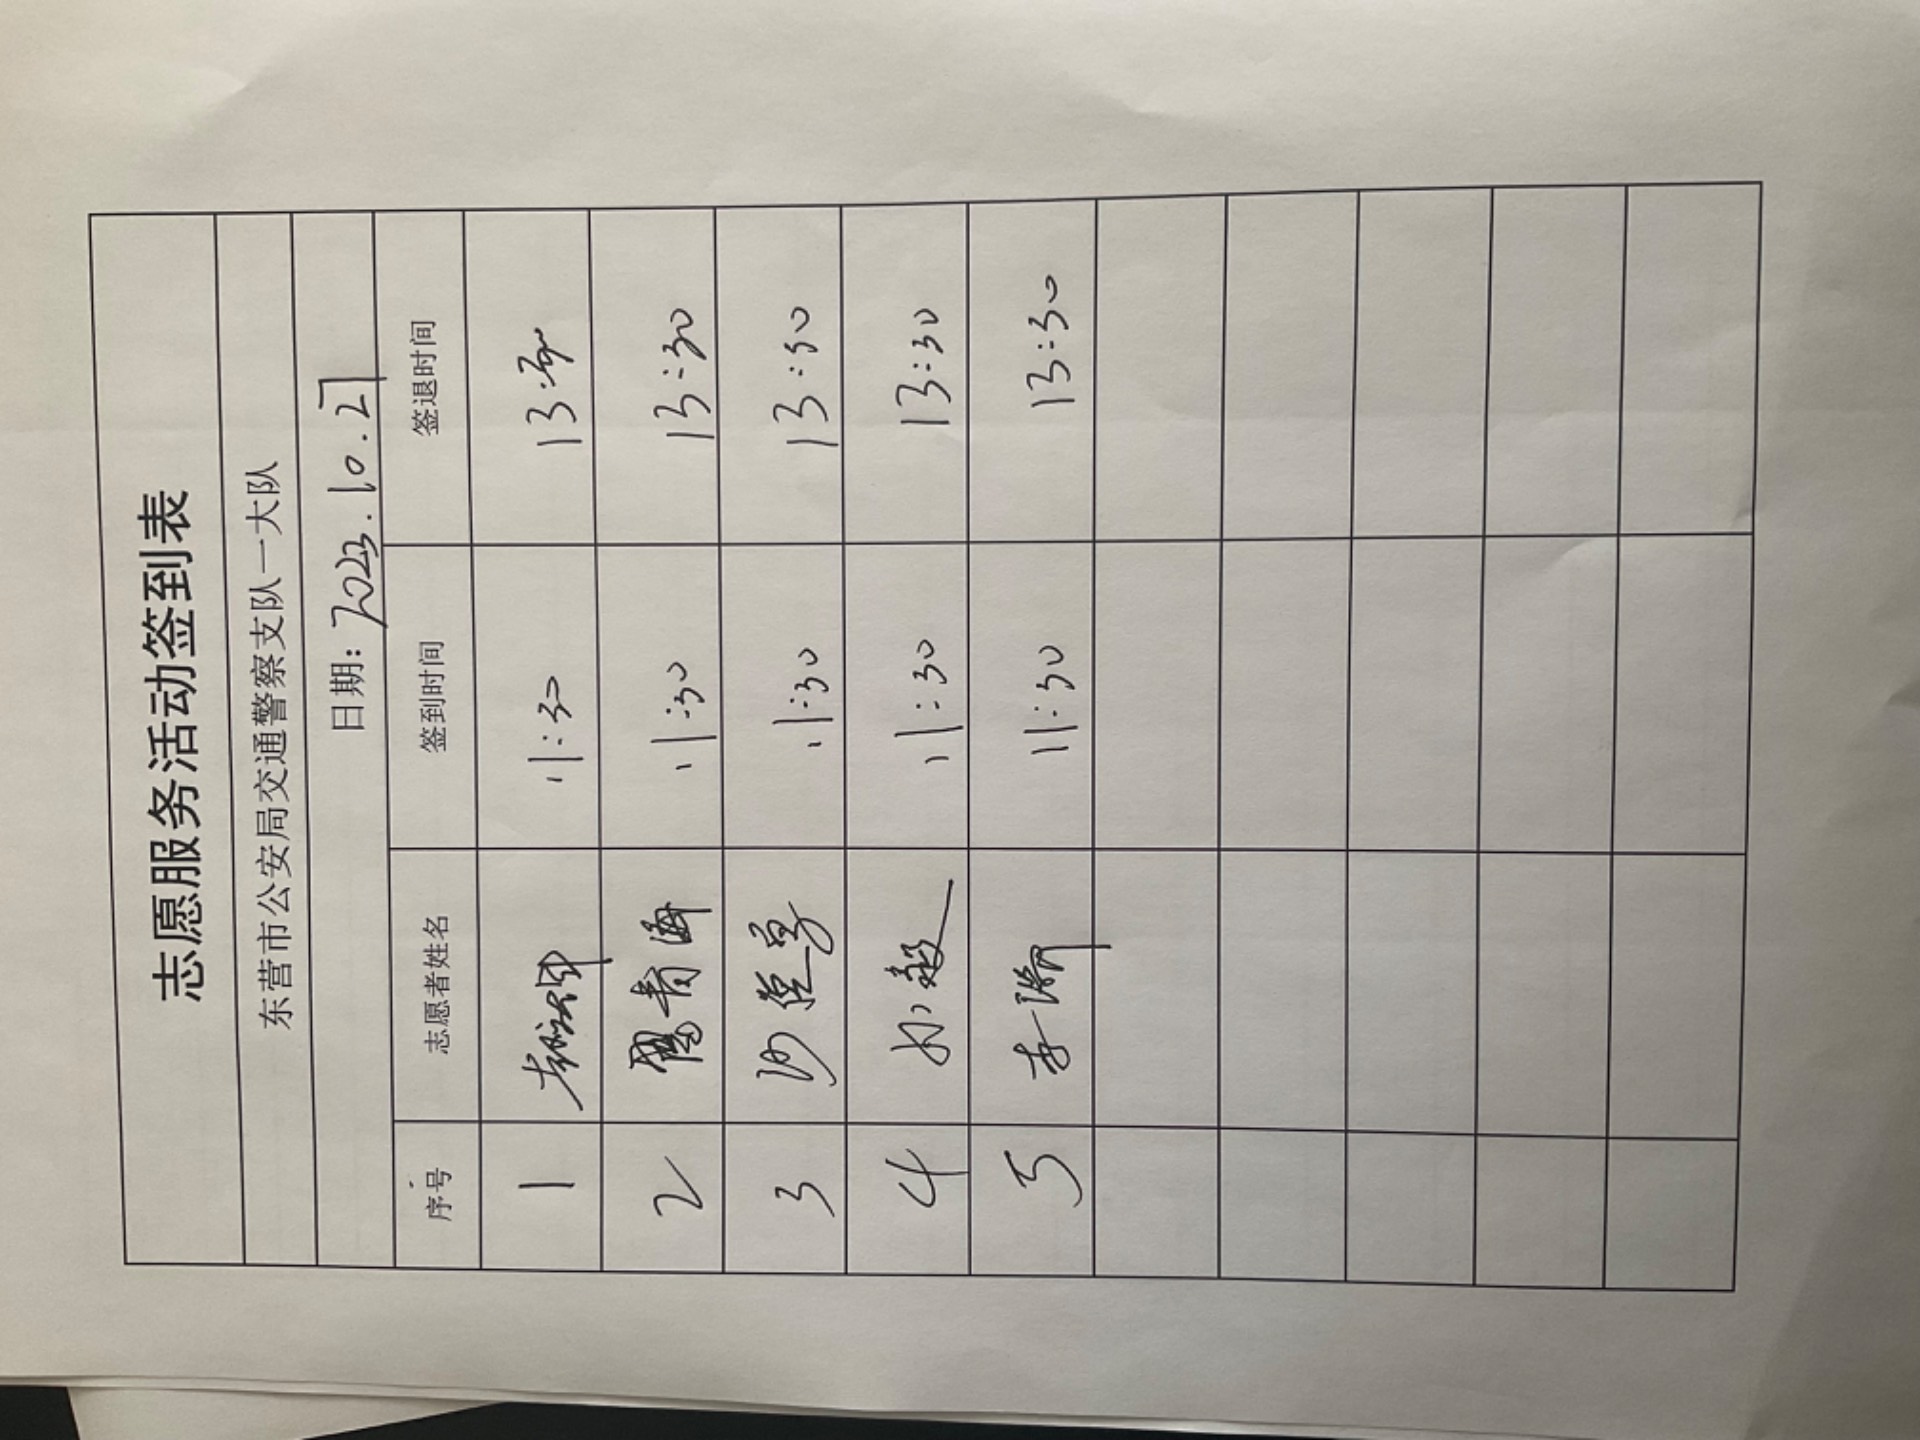 志愿服务活动签到表
东营市公安局交通警察支队一大队
日期：2023.10.27
序号 志愿者姓名 签到时间 签退时间
1 11:30 13:30
2 青海 11:30 13:30
3 11:30 13:30
4 孙毅 11:30 13:30
5 李 11:30 13:30